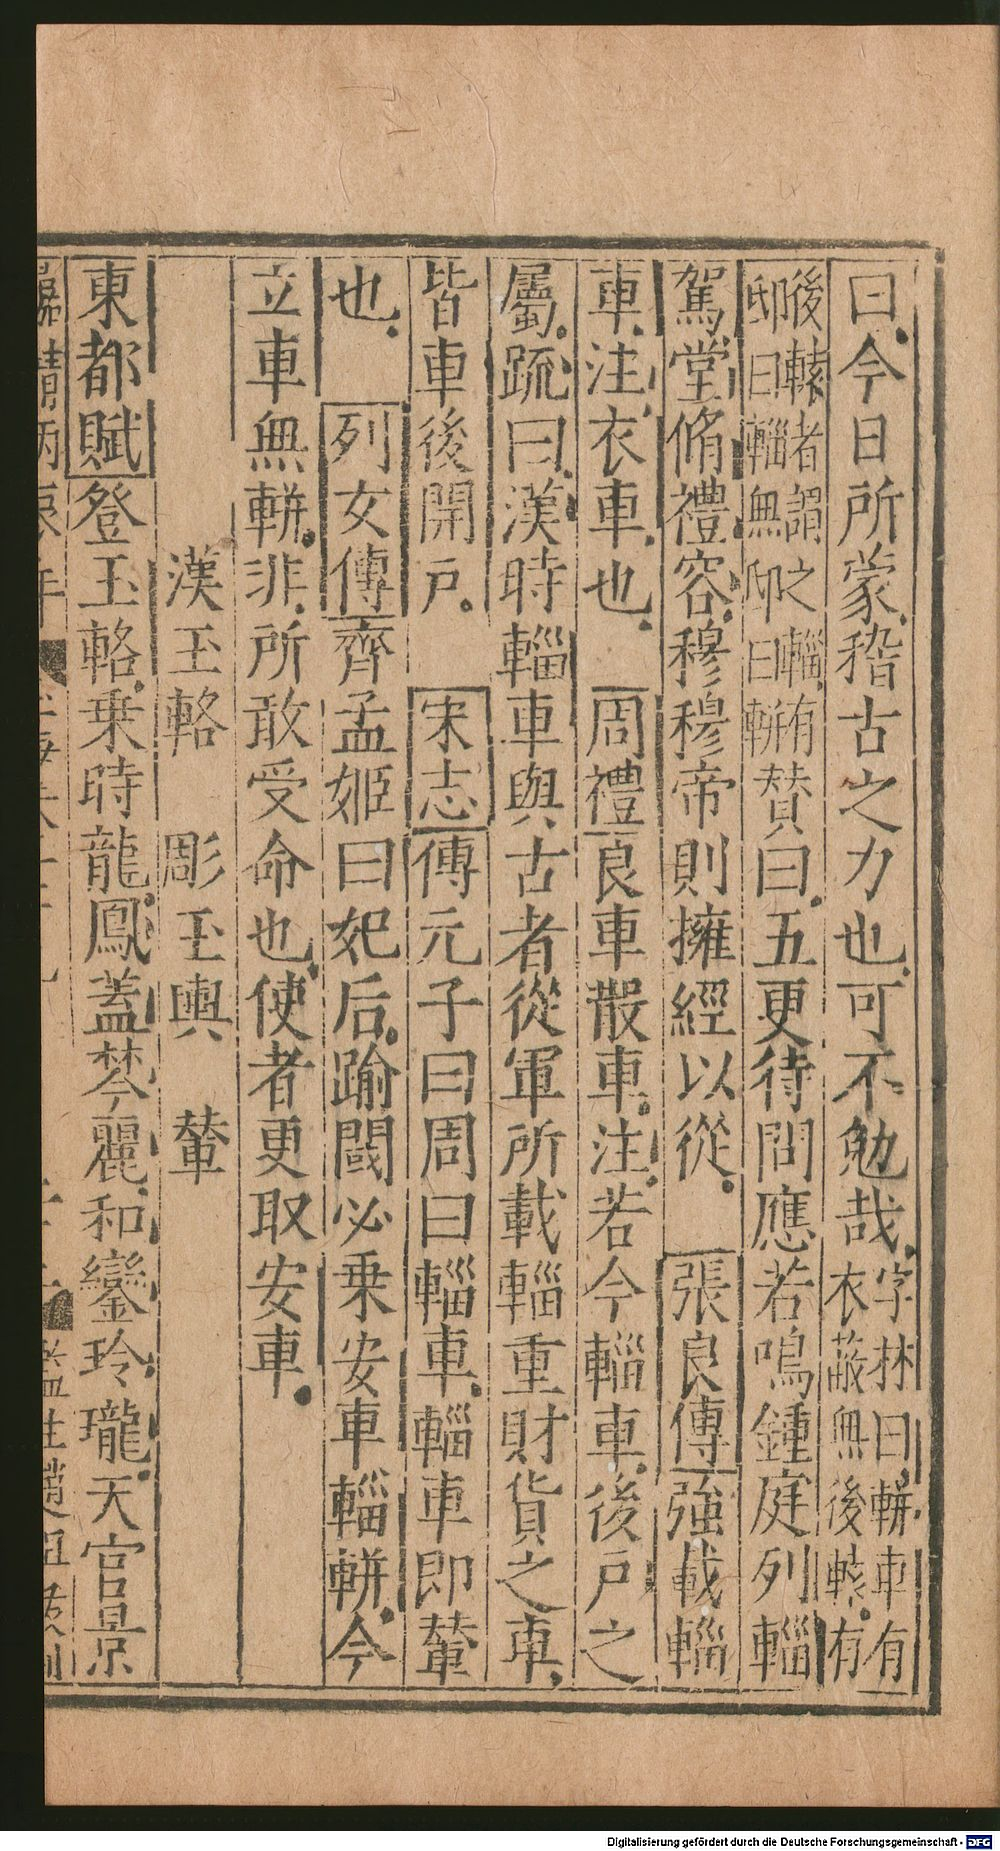 曰今日所蒙稽古之力也可不勉哉字林曰軿車有衣蔽無後轅有
後轅者謂之輜有邸曰輜無邸曰軿賛曰五更待問應若鳴鍾庭列輜
駕堂脩禮容穆穆帝則擁經以從張良傳強載輜
車注衣車也周禮良車散車注若今輜車後戸之
屬疏曰漢時輜車與古者從軍所載輜重財貨之車
皆車後開戸宋志傅元子曰周曰輜車輜車即輦
也列女傳齊孟姬曰妃后踰閾必乗安車輜軿今
立車無軿非所敢受命也使者更取安車
漢玉輅　彫玉輿　輦
東都賦登玉輅乗時龍鳳蓋棽麗和鑾玲瓏天官景
Digitalisierung gefördert durch die Deutsche Forschungsgemeinschaft - DFG